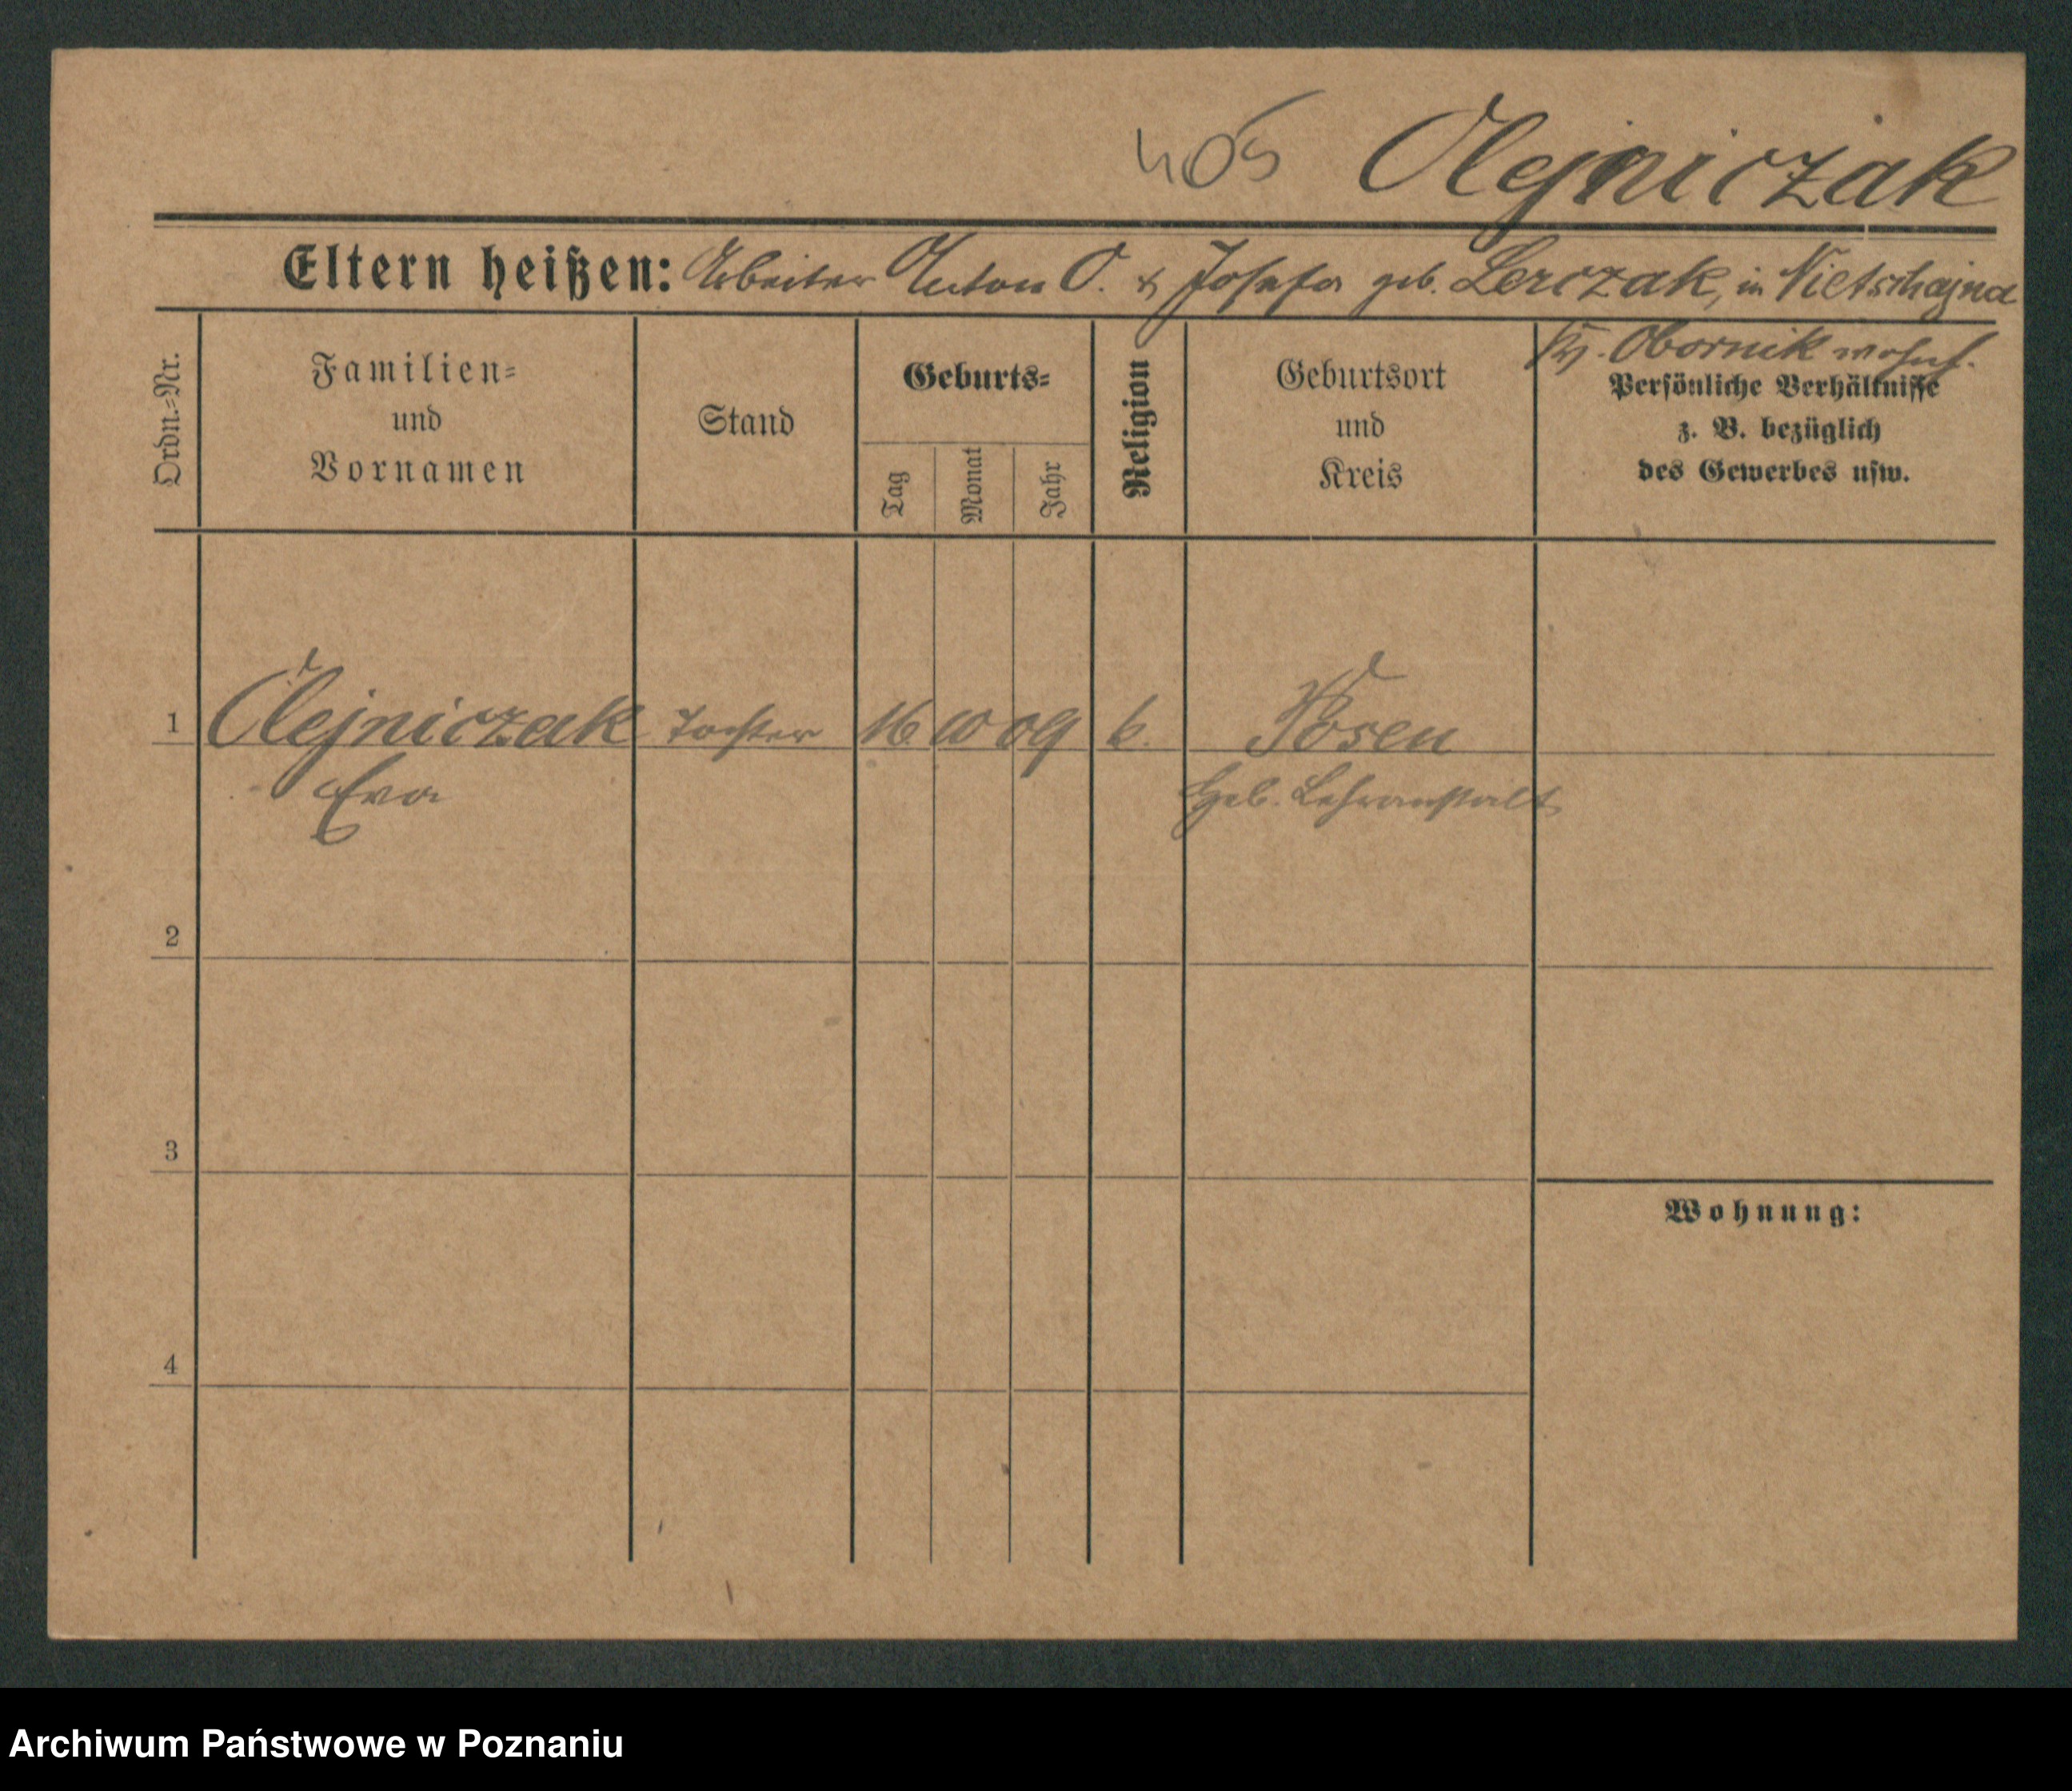 405 Olejniczak
Eltern heißen: Arbeiter Anton O. & Josefa geb. Lerczak, in Nietschajna
Krs. Obornik wohnh.
Ordn.-Nr.
Familien-
und
Vornamen
Stand
Geburts-
Tag
Monat
Jahr
Religion
Geburtsort
und
Kreis
Persönliche Verhältnisse
z. B. bezüglich
des Gewerbes usw.
1 Olejniczak Tochter 16 10 09 k. Posen
Eva Heb. Lehranstalt
2
3
Wohnung:
4
Archiwum Państwowe w Poznaniu